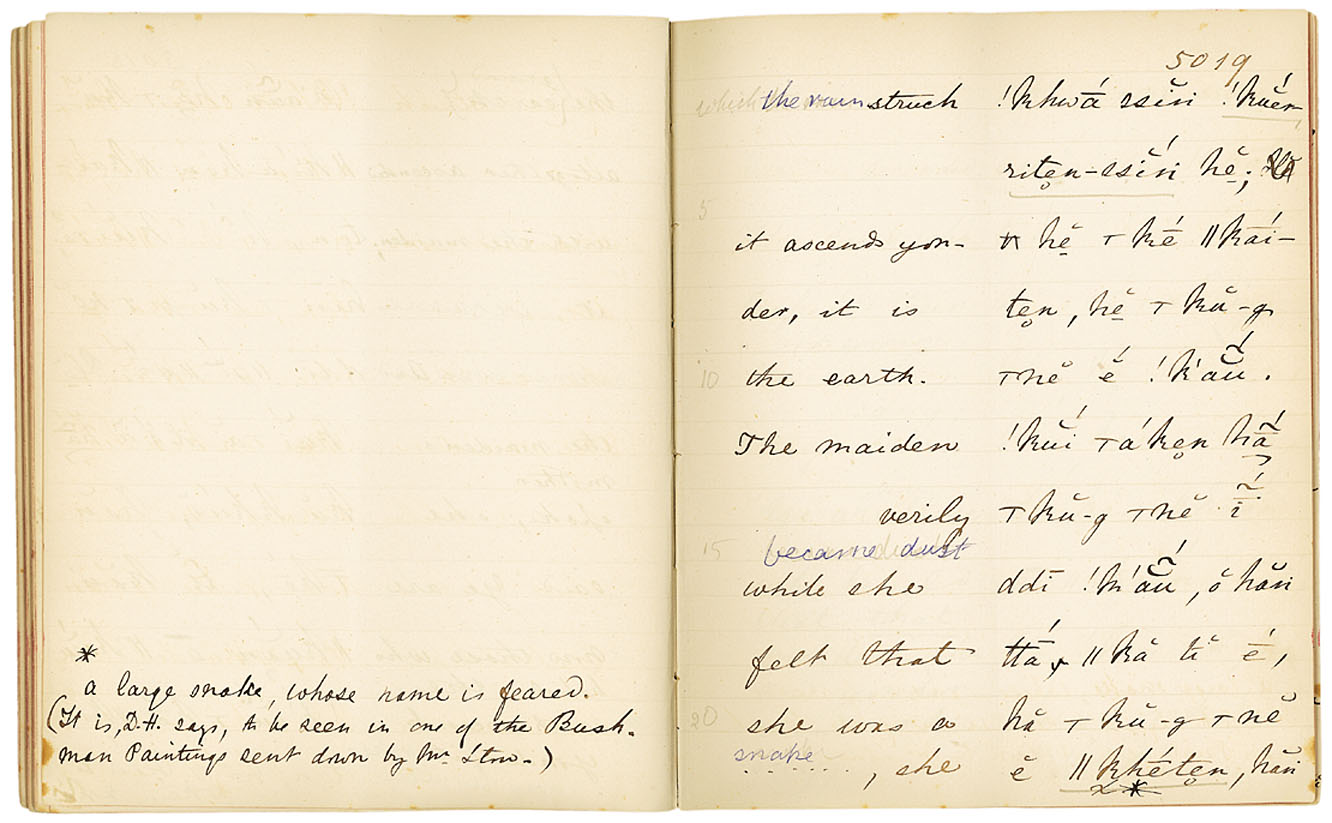 *
a large snake, whose name is feared.
(It is, D.H. says, to be seen in one of the Bush-
man Paintings sent down by Mr. Stow.)
5019
which the rain struck !khwá ssĭn !kŭér-
5
ritẹn-ssĭn hĕ;
it ascends yon- hĕ ⊤ké ǁkāi-
der, it is tẹn, hĕ ⊤kŭ-g
10 the earth. ⊤nĕ é !kʼắŭ.
The maiden !kŭí ⊤ákẹn hắ
verily ⊤kŭ-g ⊤nĕ ĭ
15 became dust
while she ddí !kʼắŭ, ŏ hăn
felt that ttá, ǁkă tĭ é,
20 she was a hă ⊤kŭ-g ⊤nĕ
snake
. . . . . . , she ĕ ǁkhétẹn, hăn
x *